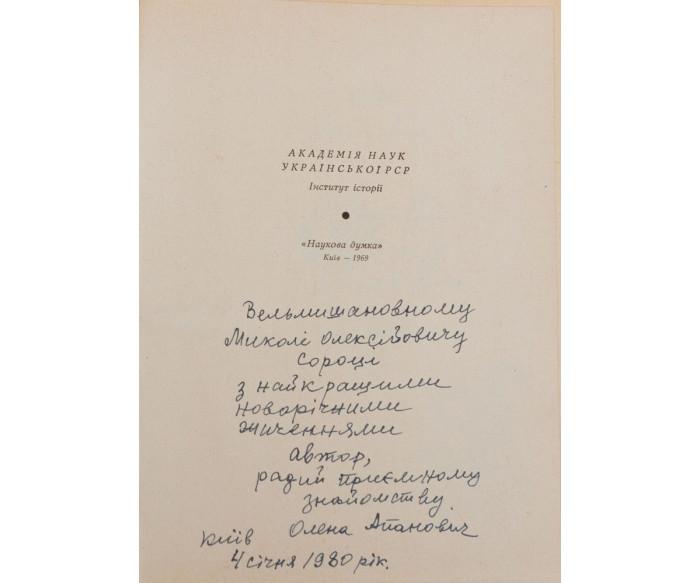 АКАДЕМІЯ НАУК
УКРАЇНСЬКОЇ РСР
Інститут історії
«Наукова думка»
Київ — 1969
Вельмишановному
Миколі Олексійовичу
Сороці
з найкращими
новорічними
жиченнями
автор,
радий приємному
знайомству.
Олена Апанович
Київ
4 січня 1980 рік.